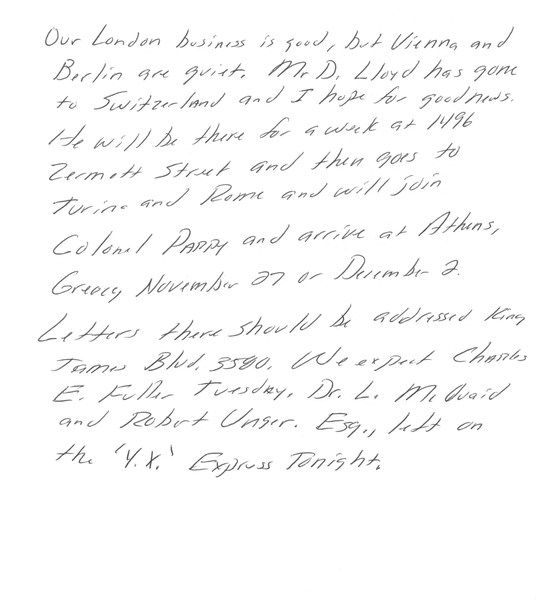 Our London business is good, but Vienna and
Berlin are quiet. Mr D. Lloyd has gone
to Switzerland and I hope for good news.
He will be there for a week at 1496
Zermott Street and then goes to
Turino and Rome and will join
Colonel Parry and arrive at Athens,
Greece November 27 or December 2.
Letters there should be addressed King
James Blvd. 3580. We expect Charles
E. Fuller Tuesday. Dr. L. McQuaid
and Robert Unger. Esq., left on
the 'Y.X.' Express Tonight.